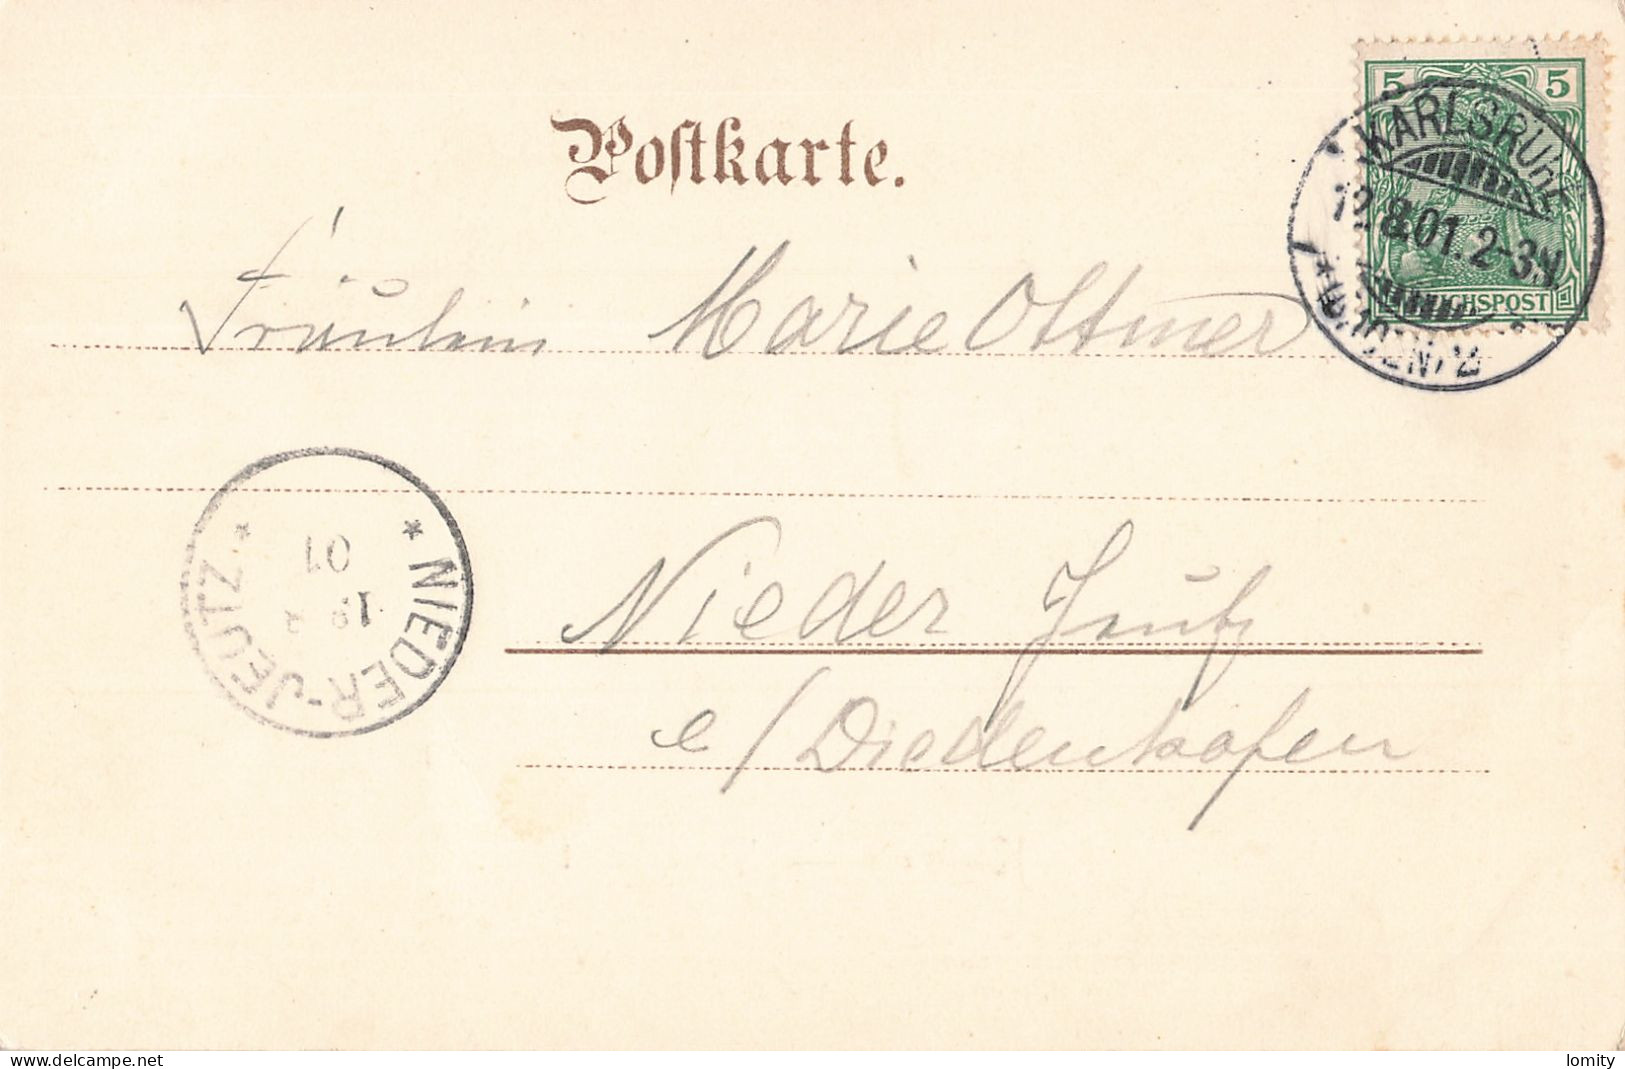 Postkarte.
5 5
KARLSRUHE
12.8.01.2-3N
REICHSPOST
Fräulein Marie Ottmer
* NIEDER-JEUTZ *
01
Nieder Jeutz
e/Diedenhofen
delcampe.net
lomity